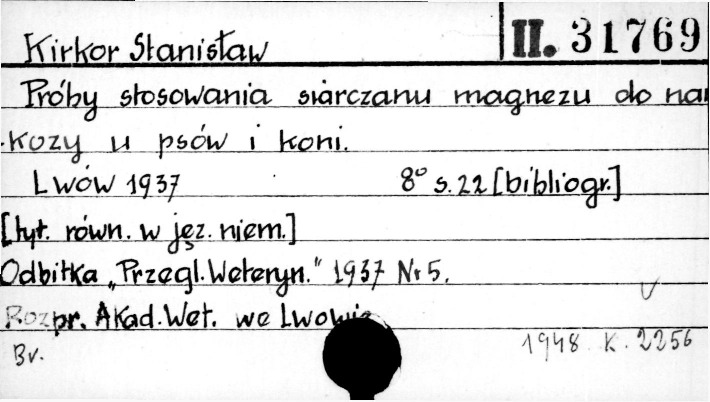 Kirkor Stanisław II. 31769
Próby stosowania siarczanu magnezu do nar
kozy u psów i koni.
Lwów 1937 8° s. 22 [bibliogr.]
[tyt. równ. w jęz. niem.]
Odbitka „Przegl. Weteryn." 1937 Nr 5.
Rozpr. Akad. Wet. we Lwowie
Br. 1948 K. 2256